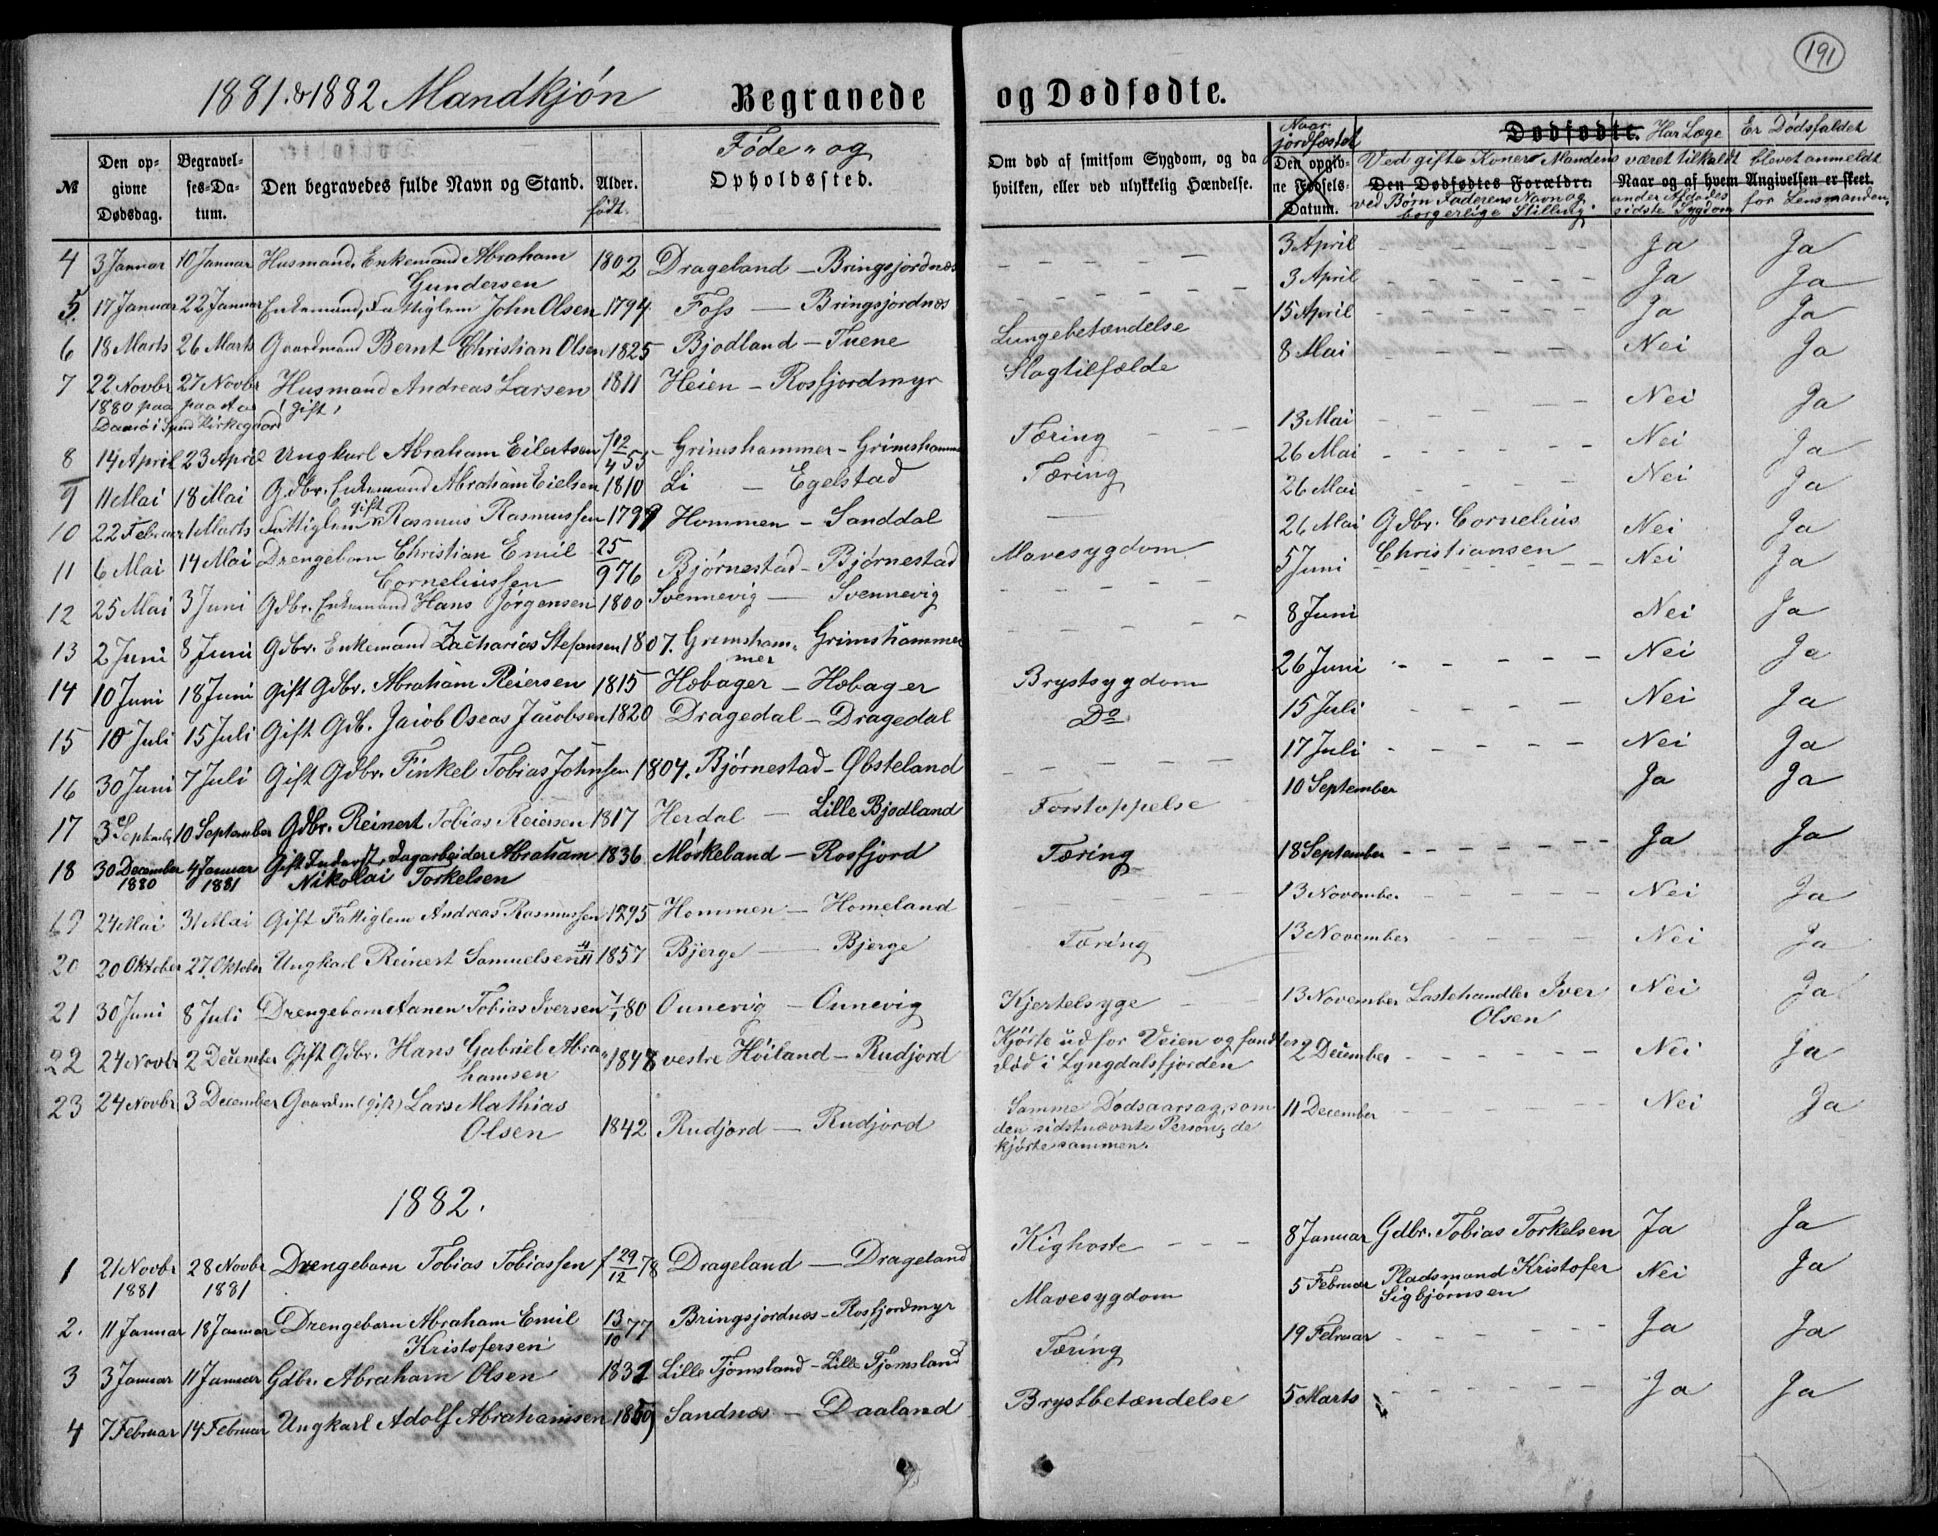 191
1881. & 1882 Mandkjön Begravede og Dødfødte.
№ Den opgivne Dødsdag. Begravelses-Datum. Den begravedes fulde Navn og Stand. Alder. født. Føde- og Opholdssted. Om død af smitsom Sygdom, og da hvilken, eller ved ulykkelig Hændelse. Naar jordfæstet Den opgivne Fødsels-Datum. Dødfødte. Ved gifte Koner Mandens Den Dødfødtes Forældre. ved Børn Faderens Navn og borgerlige Stilling. Har Læge været tilkaldt Naar og af hvem under Afdødes sidste Sygdom Er Dødsfaldet blevet anmeldt Angivelsen er skeet. for Lensmanden.
4 3 Januar 10 Januar Husmand. Enkemand Abraham Gundersen 1802 Drageland - Bringsjordnæs 3 April Ja Ja
5. 17 Januar 22 Januar Enkemand, Fattiglem John Olsen 1794 Foss - Bringsjordnæs 3 April Ja Ja
6 18 Marts 26 Marts Gaardmand Bernt Christian Olsen 1825 Bjodland - Tuene Lungebetændelse 15 April Ja Ja
7 22 Novbr 1880 paa 27 Novbr paa Husmand Andreas Larsen (gift) 1811 Heien - Rosfjordmyr Slagtilfælde 8 Mai Nei Ja
8 14 April 23 April Ungkarl Abraham Eilertsen f 12/4 55 Grimshammer - Grimshammer Tæring 13 Mai Nei Ja
9 11 Mai 18 Mai Gdbr. Enkemand Abraham Eielsen 1810 Li - Egelstad Tæring 26 Mai Nei Ja
10 22 Februar 1 Marts Fattiglem gift Rasmus Rasmussen 1799 Hommen - Sanddal 26 Mai Nei Ja
11 6 Mai 14 Mai Drengebarn Christian Emil Corneliussen 25/9 76 Bjørnestad - Bjørnestad Mavesygdom 26 Mai Gdbr. Cornelius Christiansen Nei Ja
12 25 Mai 3 Juni Gdbr. Enkemand Hans Jørgensen 1800 Svennevig - Svennevig 5 Juni Nei Ja
13 2 Juni 8 Juni Gdbr. Enkemand Zacharias Stefansen 1807. Grimshammer Grimshammer 8 Juni Nei Ja
14 10 Juni 18 Juni Gift Gdbr. Abraham Reiersen 1815 Høbager - Høbager Brystsygdom 26 Juni Nei Ja
15 10 Juli 15 Juli Gift Gdb. Jacob Oseas Jacobsen 1820 Dragedal - Dragedal Do 15 Juli Nei Ja
16 30 Juni 7 Juli Gift Gdbr. Finkel Tobias Johnsen 1804. Bjørnestad - Øbsteland 17 Juli Nei Ja
17 3 Septembr 10 September Gdbr. Reinert Tobias Reiersen 1817 Herdal - Lille Bjodland Forstoppelse 10 September Ja Ja
18 30 December 1880 4 Januar 1881 Gift Inderst, Dagarbeider Abraham Nikolai Torkelsen 1836 Møskeland - Rosfjord Tæring 18 September Ja Ja
19 24 Mai 31 Mai Gift Fattiglem Andreas Rasmussen 1795 Hommen - Homeland 13 November Nei Ja
20 20 Oktober 27. Oktober Ungkarl Reinert Samuelsen 4/11 1857 Bjerge - Bjerge Tæring 13 November Nei Ja
21 30 Juni 8 Juli Drengebarn Aanen Tobias Iversen 7/1 80 Ounevig - Ounevig Kjertelsyge 13 November Lastehandler Iver Olsen Nei Ja
22 24 Novbr 2 December Gift Gdbr. Hans Gabriel Abrahamsen 1848 vestre Høiland - Rudjord Kjørte ud for Veien og fandtes død i Lyngdalsfjorden 2 December Nei Ja
23 24 Novbr 3 December Gaardm (gift) Lars Mathias Olsen 1842 Rudjord - Rudjord Samme Dødsaarsag, som den sidstnævnte Person; de kjørte sammen. 11 December Nei Ja
1882.
1 21 Novbr 1881 28 Novbr 1881 Drengebarn Tobias Tobiassen f 29/12 78 Drageland - Drageland Kighoste 8 Januar Gdbr. Tobias Torkelsen Ja Ja
2. 11 Januar 18 Januar Drengebarn Abraham Emil Kristofersen 13/10 77 Bringsjordnæs - Rosfjordmyr Mavesygdom 5 Februar Pladsmand Kristofer Sigbjørnsen Nei Ja
3 3 Januar 11 Januar Gdbr. Abraham Olsen 1831 Lille Tjomsland - Lille Tjomsland Tæring 19 Februar Ja Ja
4 7 Februar 14 Februar Ungkarl Adolf Abrahamsen Sandnæs - Daaland Brystbetændelse 5 Marts Ja Ja